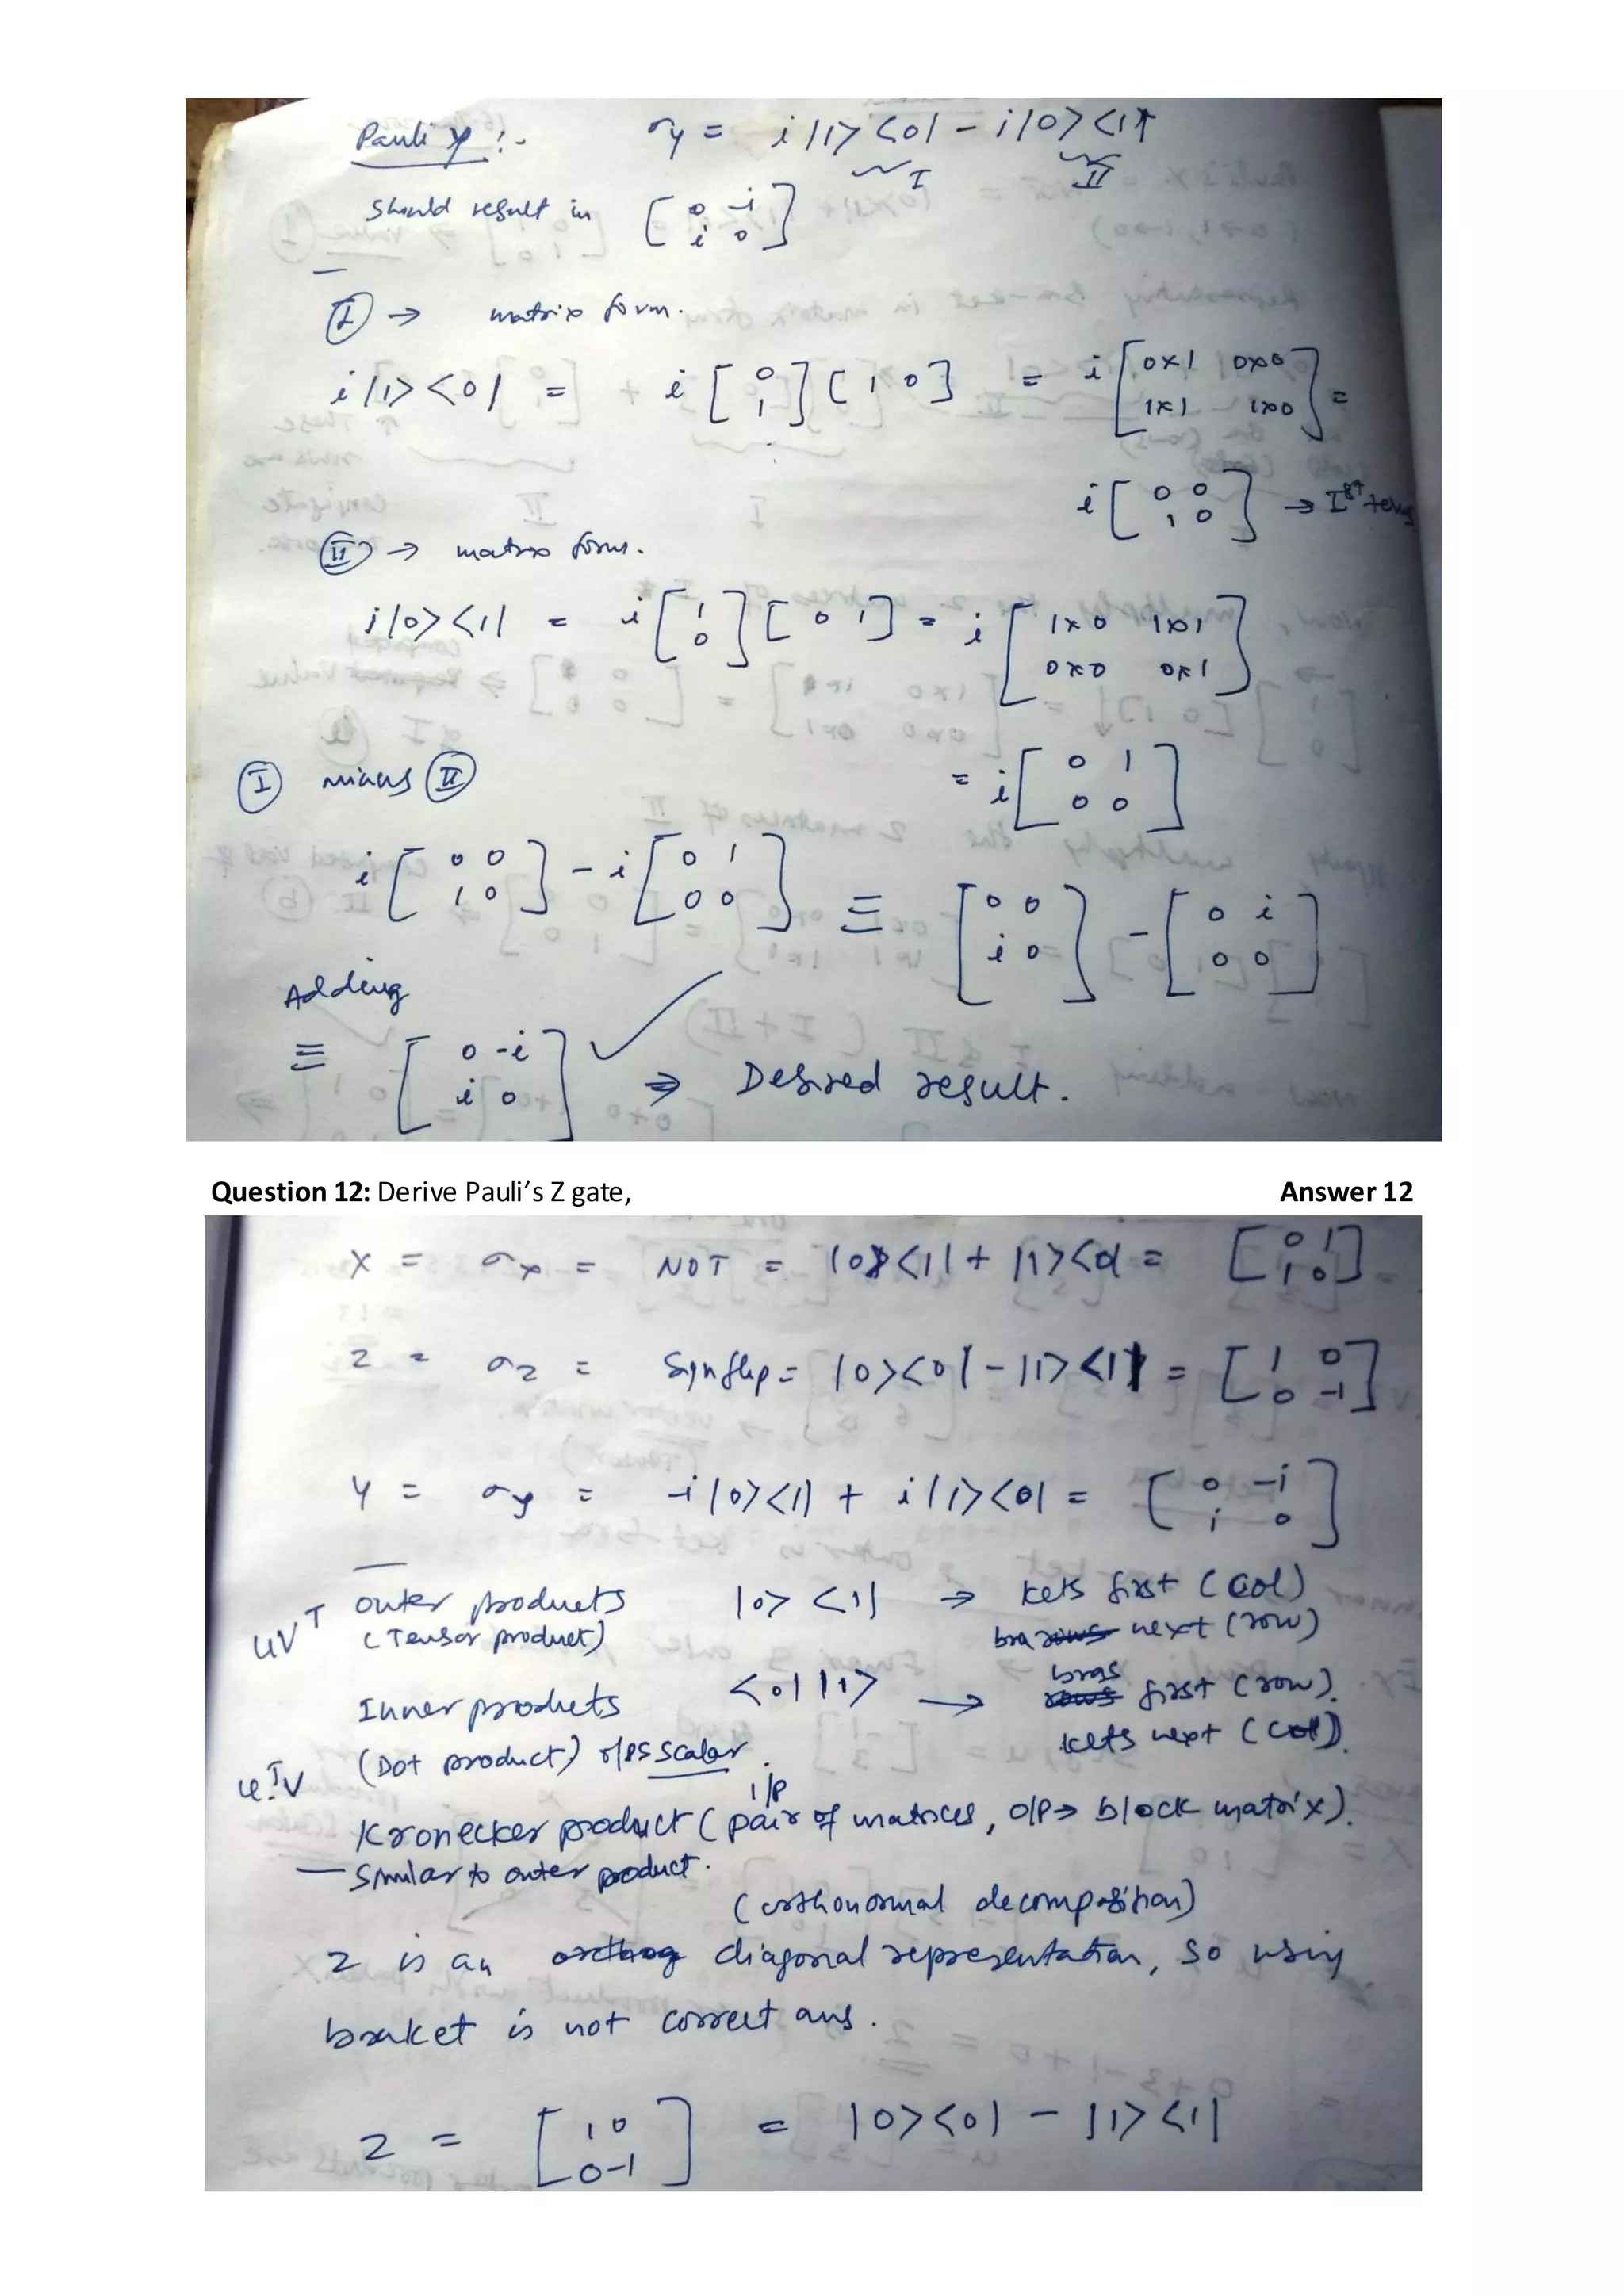 Pauli y :- σy = i |1> <0| - i |0> <1|
I II
Should result in [0 -i; i 0]
I → matrix form.
i |1> <0| = i [0; 1] [1 0] = i [0x1 0x0; 1x1 1x0] =
i [0 0; 1 0] → Ist term
II → matrix form.
i |0> <1| = i [1; 0] [0 1] = i [1x0 1x1; 0x0 0x1]
= i [0 1; 0 0]
I minus II
i [0 0; 1 0] - i [0 1; 0 0] ≡ [0 0; i 0] - [0 i; 0 0]
Adding
≡ [0 -i; i 0] ✓ ⇒ Desired result.
Question 12: Derive Pauli’s Z gate, Answer 12
X = σx = NOT = |0> <1| + |1> <0| = [0 1; 1 0]
Z = σz = Signflip = |0> <0| - |1> <1| = [1 0; 0 -1]
Y = σy = -i |0> <1| + i |1> <0| = [0 -i; i 0]
UV^T outer products |0> <1| → kets first (col)
(Tensor product) bra next (row)
Inner products <0| |1> → bras first (row).
u^T.V (Dot product) o/ps scalar. kets next (col).
I/P
Kronecker product (pair of matrices, o/p → block matrix).
— Similar to outer product.
(orthonormal decomposition)
Z is an diagonal representation, so using
braket is not correct ans.
Z = [1 0; 0 -1] = |0> <0| - |1> <1|